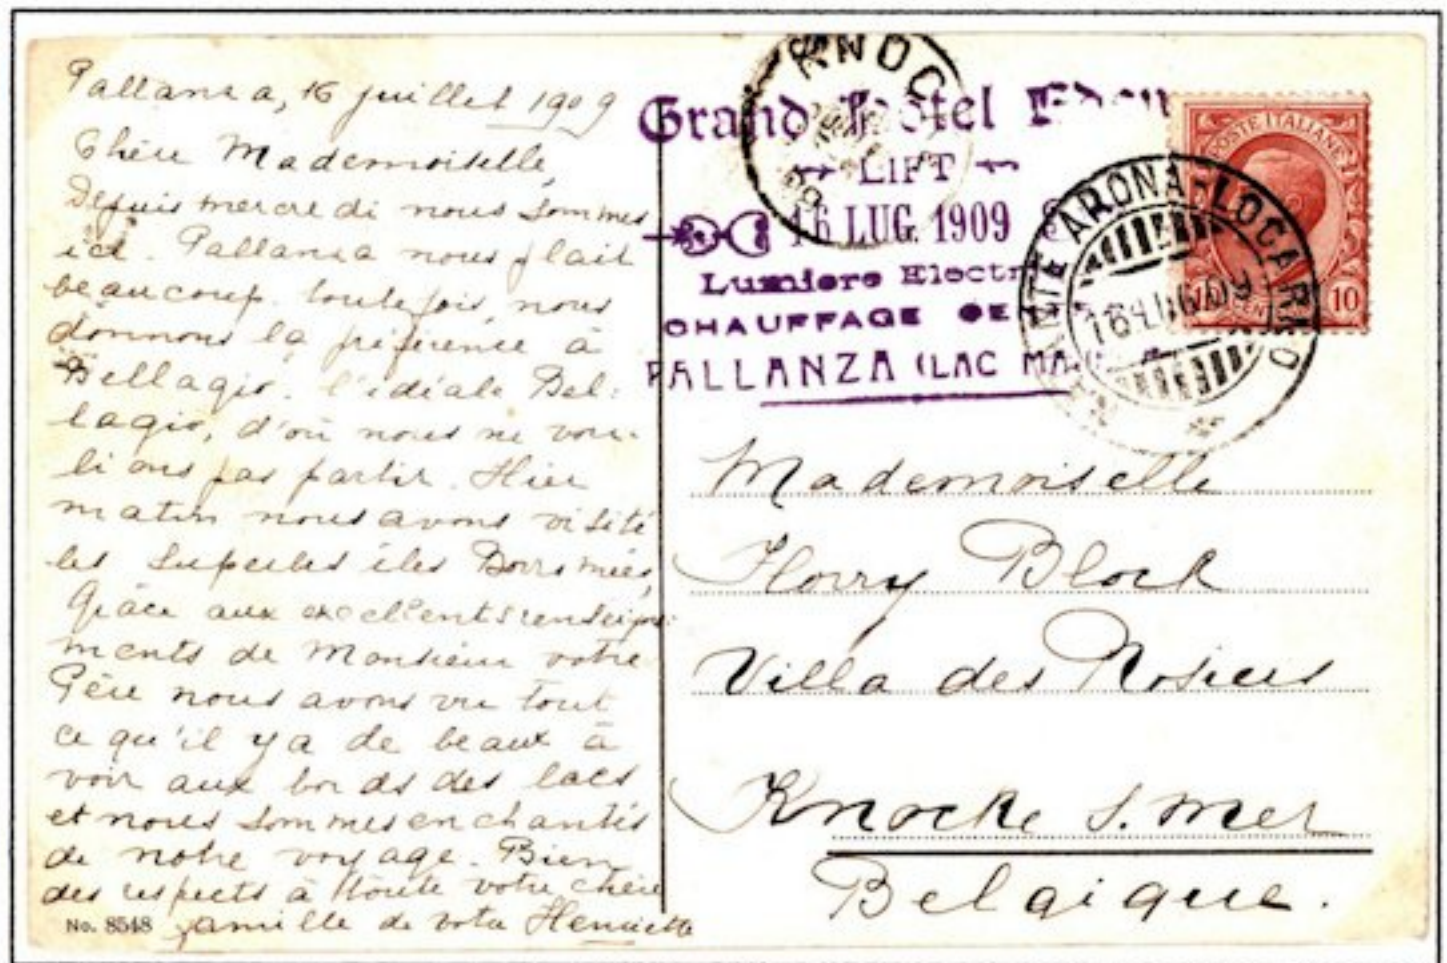 Pallanza, 16 juillet 1909
Chère Mademoiselle,
Depuis mercredi nous sommes
ici. Pallanza nous plait
beaucoup. toutefois, nous
donnons la préférence à
Bellagio. l'idéale Bel-
lagio, d'où nous ne vou-
lions pas partir. Hier
matin nous avons visité
les superbes îles Borromées,
Grâce aux excellents renseigne-
ments de Monsieur votre
Père nous avons vu tout
ce qu'il y a de beaux à
voir aux bords des lacs
et nous sommes enchantés
de notre voyage. Bien
des respects à toute votre chère
famille de votre Henriette
No. 8548
KNOC
09
Grand Hotel
LIFT
16 LUG. 1909
Lumiere Electr
CHAUFFAGE
PALLANZA (LAC MA
POSTE ITALIANE
10
ARONA-LOCARNO
16 LUG 09
Mademoiselle
Florry Block
Villa des Rosiers
Knocke s. mer
Belgique.